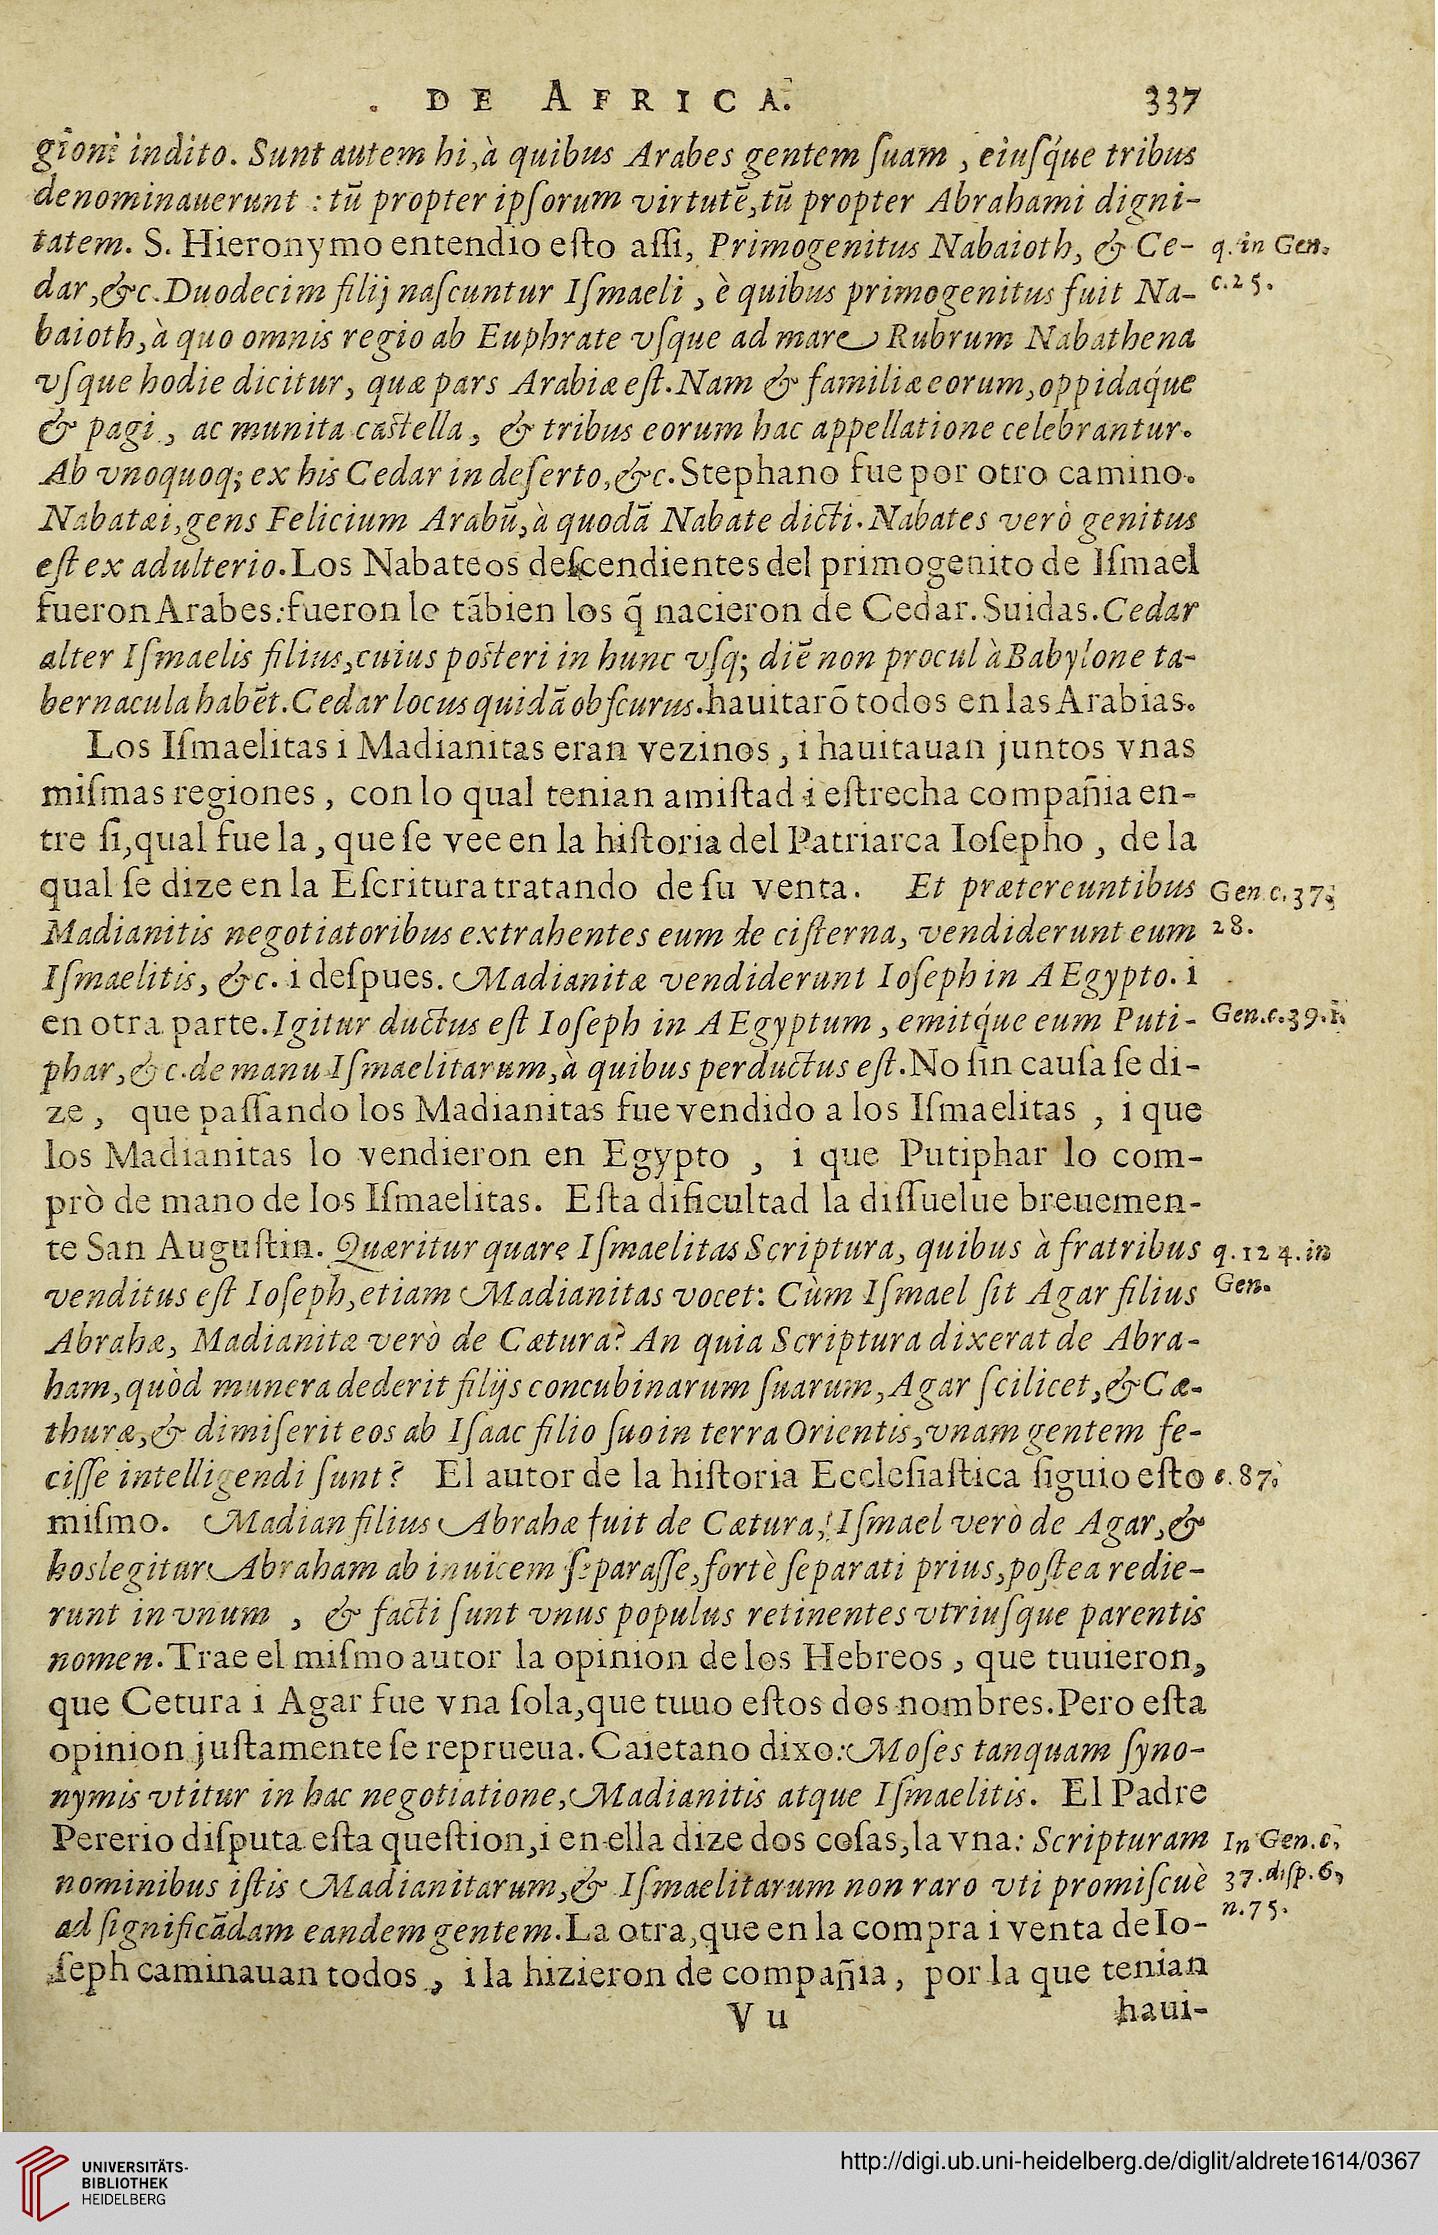 DE AFRICA. 337
gioni indito. Sunt autem hi, à quibus Arabes gentem ſuam, eiuſq́ue tribus
denominauerunt : tũ propter ipſorum virtutẽ, tũ propter Abrahami digni-
tatem. S. Hieronymo entendio eſto aſſi, Primogenitus Nabaioth, & Ce-
q. in Gen.
dar, &c. Duodecim filij naſcuntur Iſmaeli, è quibus primogenitus fuit Na-
c. 25.
baioth, à quo omnis regio ab Euphrate vſque ad mare Rubrum Nabathena
vſque hodie dicitur, quæ pars Arabiæ eſt. Nam & familiæ eorum, oppidaq́ue
& pagi, ac munita caſtella, & tribus eorum hac appellatione celebrantur.
Ab vnoquoq; ex his Cedar in deſerto, &c. Stephano fue por otro camino.
Nabatæi, gens Felicium Arabũ, à quodã Nabate dicti. Nabates verò genitus
eſt ex adulterio. Los Nabateos deſcendientes del primogenito de Iſmael
fueron Arabes: fueron lo tãbien los q̃ nacieron de Cedar. Suidas. Cedar
alter Iſmaelis filius, cuius poſteri in hunc vſq; diẽ non procul à Babylone ta-
bernacula habẽt. Cedar locus quidã obſcurus. hauitarõ todos en las Arabias.
Los Iſmaelitas i Madianitas eran vezinos, i hauitauan juntos vnas
miſmas regiones, con lo qual tenian amiſtad i eſtrecha compañia en-
tre ſi, qual fue la, que ſe vee en la hiſtoria del Patriarca Ioſepho, de la
qual ſe dize en la Eſcritura tratando de ſu venta. Et prætereuntibus
Gen. c. 37.
Madianitis negotiatoribus extrahentes eum de ciſterna, vendiderunt eum
28.
Iſmaelitis, &c. i deſpues. Madianitæ vendiderunt Ioſeph in AEgypto. i
en otra parte. Igitur ductus eſt Ioſeph in AEgyptum, emitq́ue eum Puti-
Gen. c. 39. 1.
phar, &c. de manu Iſmaelitarum, à quibus perductus eſt. No ſin cauſa ſe di-
ze, que paſſando los Madianitas fue vendido a los Iſmaelitas, i que
los Madianitas lo vendieron en Egypto, i que Putiphar lo com-
prò de mano de los Iſmaelitas. Eſta dificultad la diſſuelue breuemen-
te San Auguſtin. Quæritur quare Iſmaelitas Scriptura, quibus à fratribus
q. 124. in
venditus eſt Ioſeph, etiam Madianitas vocet: Cùm Iſmael ſit Agar filius
Gen.
Abrahæ, Madianitæ verò de Cætura? An quia Scriptura dixerat de Abra-
ham, quòd munera dederit filijs concubinarum ſuarum, Agar ſcilicet, & Cæ-
thuræ, & dimiſerit eos ab Iſaac filio ſuo in terra Orientis, vnam gentem fe-
ciſſe intelligendi ſunt? El autor de la hiſtoria Eccleſiaſtica ſiguio eſto
c. 87.
miſmo. Madian filius Abrahæ fuit de Cætura, Iſmael verò de Agar, &
hos legitur Abraham ab inuicem ſeparaſſe, fortè ſeparati prius, poſtea redie-
runt in vnum, & facti ſunt vnus populus retinentes vtriuſque parentis
nomen. Trae el miſmo autor la opinion de los Hebreos, que tuuieron,
que Cetura i Agar fue vna ſola, que tuuo eſtos dos nombres. Pero eſta
opinion juſtamente ſe reprueua. Caietano dixo: Moſes tanquam ſyno-
nymis vtitur in hac negotiatione, Madianitis atque Iſmaelitis. El Padre
Pererio diſputa eſta queſtion, i en ella dize dos coſas, la vna: Scripturam
In Gen. c.
nominibus iſtis Madianitarum, & Iſmaelitarum non raro vti promiſcuè
37. diſp. 6,
ad ſignificãdam eandem gentem. La otra, que en la compra i venta de Io-
n. 75.
ſeph caminauan todos, i la hizieron de compañia, por la que tenian
V u haui-
UNIVERSITÄTS-
BIBLIOTHEK
HEIDELBERG
http://digi.ub.uni-heidelberg.de/diglit/aldrete1614/0367